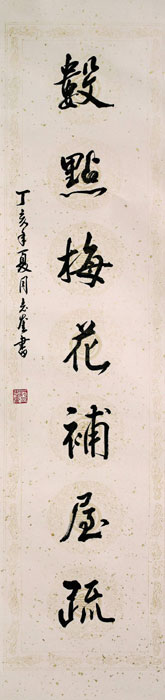 數點梅花補屋疏
丁亥年夏周志崟書